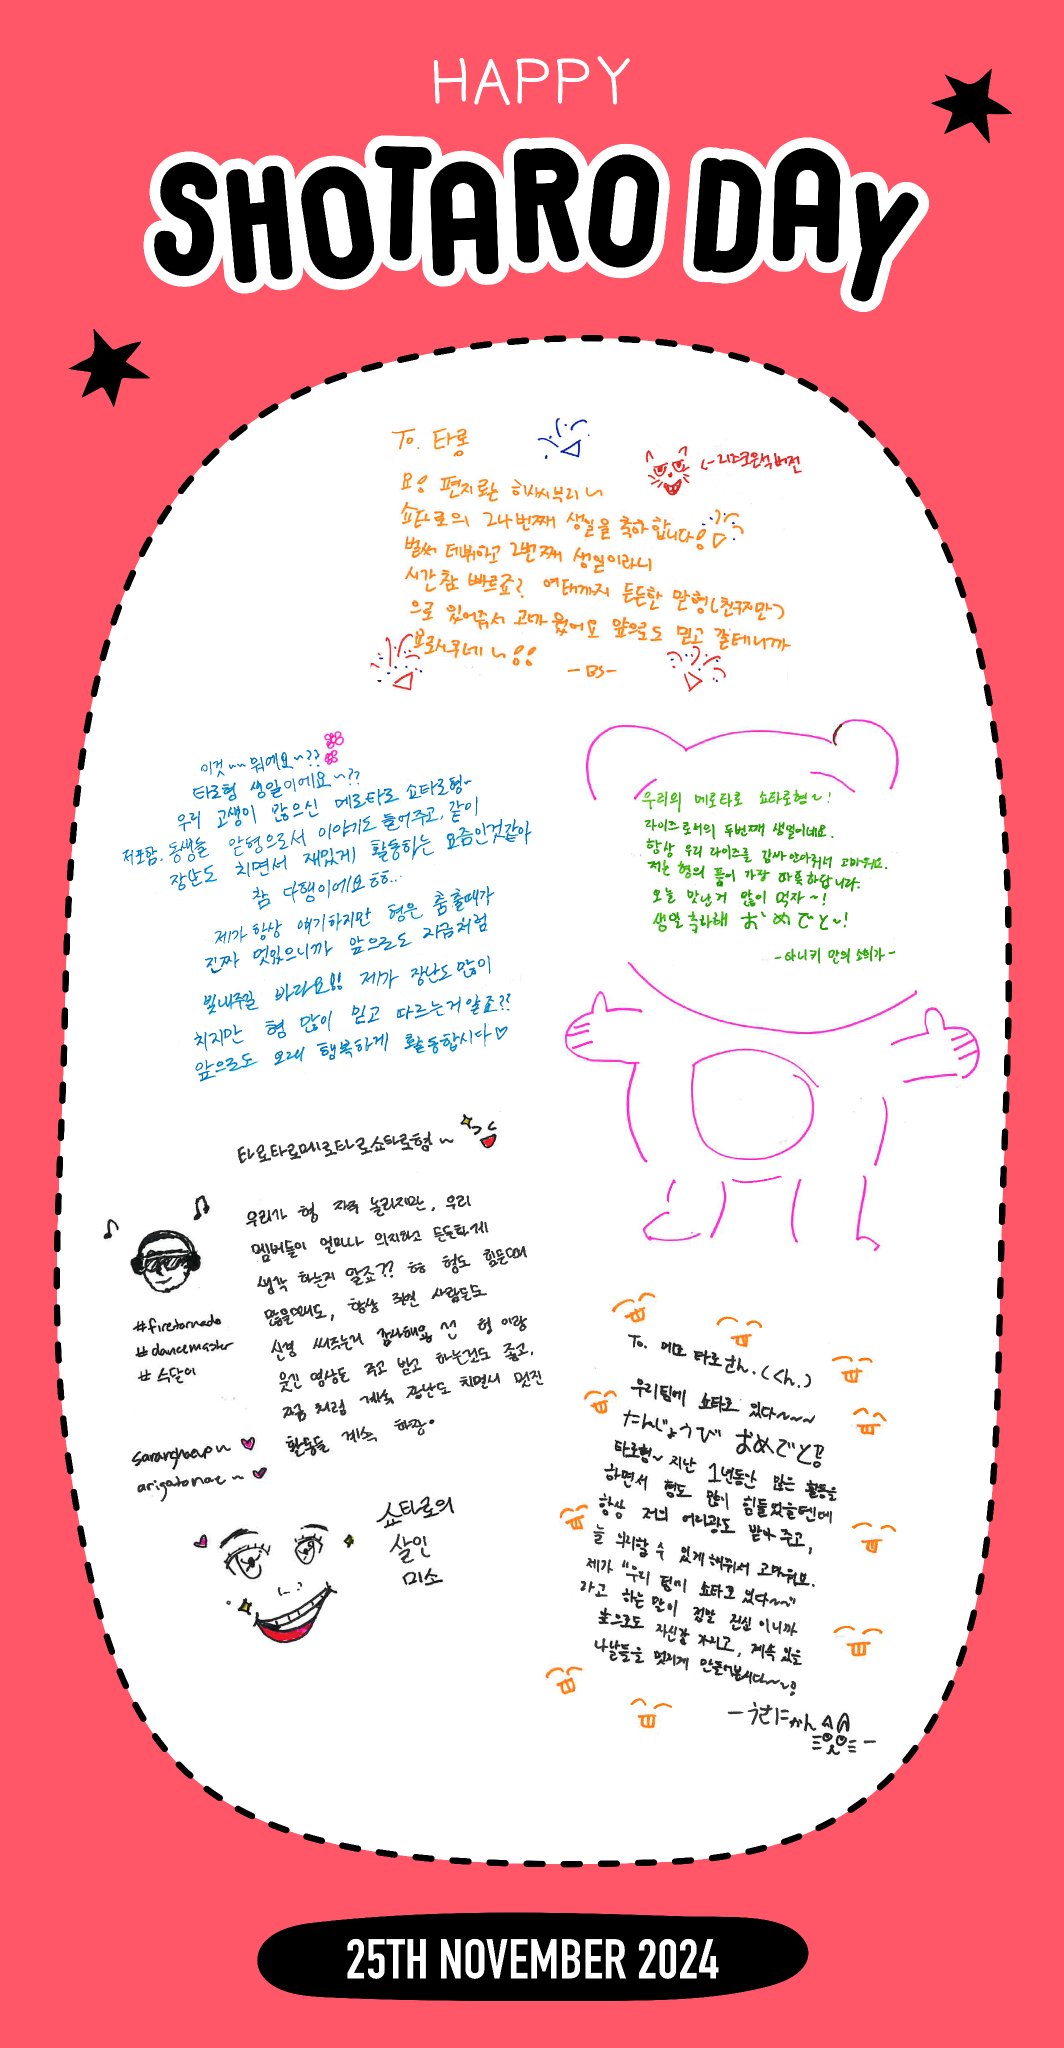 HAPPY
SHOTARO DAY
To. 타롱
<-리즈크왕벅버전
요! 편지로는 히사씨부리~
쇼타로의 24번째 생일을 축하합니다!
벌써 데뷔하고 2번째 생일이라니
시간참 빠르죠? 여태까지 든든한 맏형(친구지만)
으로 있어줘서 고마웠어요 앞으로도 믿고 갈테니까
요로시쿠네~!!
-BS-
이것~~뭐에요~??
타로형 생일이에요~??
우리 고생이 많으신 메로타로 쇼타로형~
저포함, 동생들 맏형으로서 이야기도 들어주고, 같이
장난도 치면서 재밌게 활동하는 요즘인것같아
참 다행이에요ㅎㅎ...
제가 항상 얘기하지만 형은 춤출때가
진짜 멋있으니까 앞으로도 지금처럼
빛내주길 바라요!! 제가 장난도 많이
치지만 형 많이 믿고 따르는거 알죠??
앞으로도 오래 행복하게 활동합시다♡
우리의 메로타로 쇼타로형~!
라이즈로서의 두번째 생일이네요.
항상 우리 라이즈를 감싸안아줘서 고마워요.
저는 형의 품이 가장 따뜻하답니다.
오늘 맛난거 많이 먹자~!
생일 축하해 おめでと~!
-아니키 만의 소희가-
타로타로메로타로쇼타로형~
우리가 형 자주 놀리지만, 우리
멤버들이 얼마나 의지하고 든든하게
생각 하는지 알죠?? ㅎㅎ 형도 힘든때
많을텐데도, 항상 주변 사람들도
신경 써주는거 감사해요 형 이랑
웃긴 영상들 주고 받고 하는것도 좋고,
지금 처럼 계속 장난도 치면서 멋진
활동들 계속 하장.
#firetornado
#dancemaster
#수달이
saranghaeyo~♥
arigatonae~♥
쇼타로의
살인
미소
To. 메로 타로さん. (くん.)
우리팀에 쇼타로 있다~~~~
たんじょうび おめでと!
타로형~ 지난 1년동안 많은 활동을
하면서 형도 많이 힘들었을텐데
항상 저의 어리광도 받아 주고,
늘 의지할 수 있게 해줘서 고마워요.
제가 "우리 팀에 쇼타로 있다~~"
라고 하는 말이 정말 진심 이니까
앞으로도 자신감 가지고, 계속 있을
나날들을 멋지게 만들어봅시다~~!
25TH NOVEMBER 2024